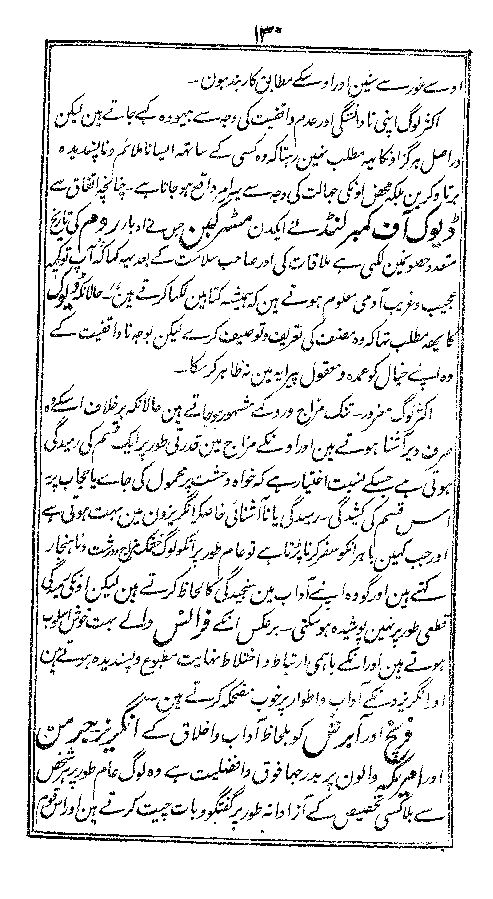 ۱۳۰
اوسے غور سے سنین اور اوسکے مطابق کاربند ہون ۔
اکثر لوگ اپنی نادانستگی اور عدم واقفیت کی وجہ سے بیہودہ کہے جاتے ہین لیکن
دراصل ہرگز اونکا یہ مطلب نہین رہتا کہ وہ کسی کے ساتھ ایسا ناملائم و ناپسندیدہ
برتاؤ کرین بلکہ محض اونکی جہالت کی وجہ سے یہ امر واقع ہو جاتا ہے ۔ چنانچہ اتفاق سے
ڈیوک آف کمبرلنڈ نے ایکدن مسٹر گبن جس نے ادبار روم کی تاریخ
متعدد حصونمین لکھی ہے ملاقات کی اور صاحب سلامت کے بعد یہ کہا کہ آپ تو کچھ
عجیب و غریب آدمی معلوم ہوتے ہین کہ ہمیشہ کتابین لکھا کرتے ہین" ۔ حالانکہ ڈیوک
کا یہہ مطلب تہا کہ وہ مصنف کی تعریف و توصیف کرے لیکن بوجہ ناواقفیت کے
وہ اپنے خیال کو عمدہ و معقول پیرایہ مین نہ ظاہر کر سکا ۔
اکثر لوگ مغرور ۔ تنک مزاج و رد کے مشہور ہو جاتے ہین حالانکہ برخلاف اسکے وہ
صرف دیر آشنا ہوتے ہین اور اونکے مزاج مین قدرتی طور پر ایک قسم کی رمیدگی
ہوتی ہے جسکے نسبت اختیار ہے کہ خواہ وحشت پر محمول کی جاے یا حجاب پر
اس قسم کی کشیدگی ۔ رمیدگی یا ناآشنائی خاصکر انگریزون مین بہت ہوتی ہے
اور جب کہین باہر انکو سفر کرنا پڑتا ہے تو عام طور پر انکو لوگ خشک مزاج و درشت و ناہنجار
کہتے ہین اور گو وہ اپنے آداب مین سنجیدگی کا لحاظ کرتے ہین لیکن اونکی رمیدگی
قطعی طور پر نہین پوشیدہ ہوسکتی ۔ برعکس انکے فرانس والے بہت خوش اسلوب
ہوتے ہین اور انکے باہمی ارتباط و اختلاط نہایت مطبوع و پسندیدہ ہوتے ہین
او انگریزونکے آداب و اطوار پر خوب مضحکہ کرتے ہین ۔
فرنچ اور آیرش کو بلحاظ آداب و اخلاق کے انگریز جرمن
اور امریکہ والون پر بدرجہا فوق و افضلیت ہے وہ لوگ عام طور پر ہر شخص
سے بلا کسی تخصیص کے آزادانہ طور پر گفتگو و بات چیت کرتے ہین اور اس قوم